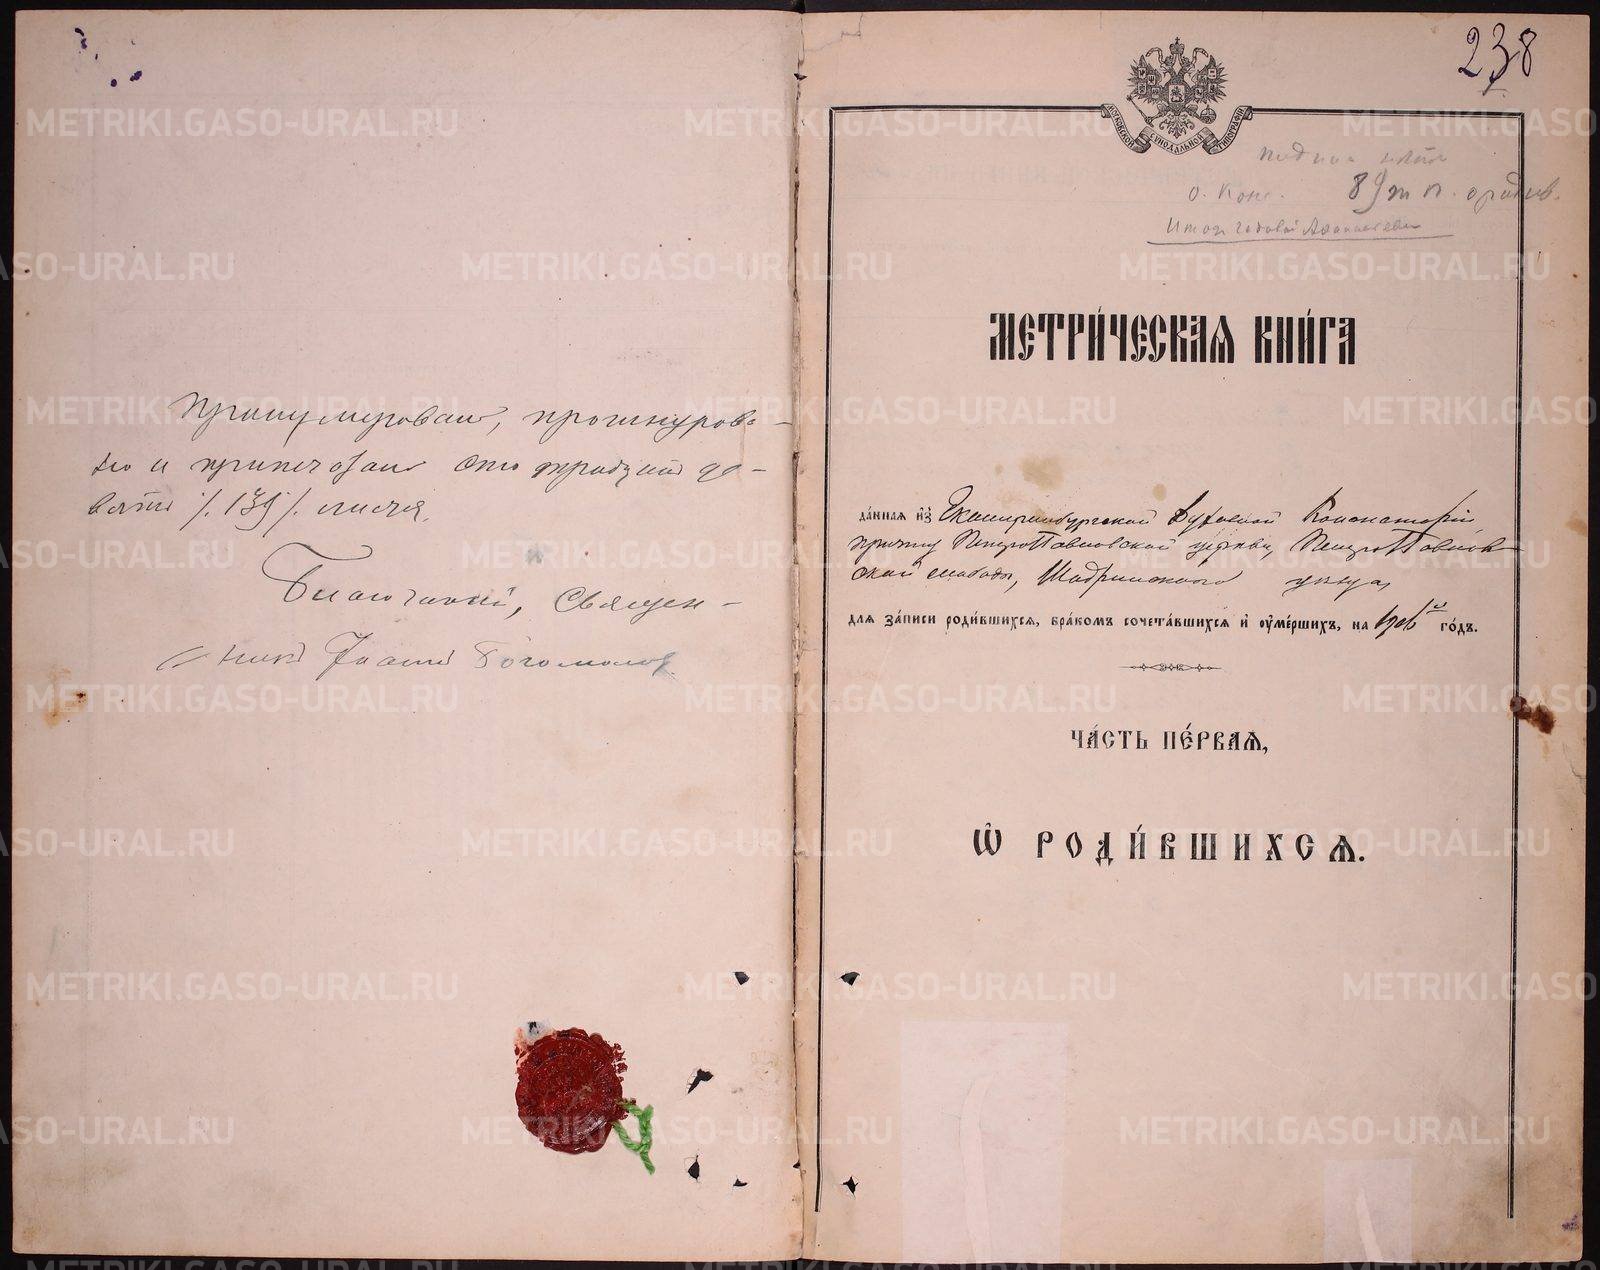 Пронумеровано, прошнурова-
но и припечатано сто тридцать де-
вять /139/ листов.
Благочинный, Священ-
ник Иоанн Богомолов
238
МОСКОВСКОЙ СѴНОДАЛЬНОЙ ТИПОГРАФІИ
о. Конс. 89
МЕТРИ́ЧЕСКАѦ КНИ́ГА
да́нная и҆з̾ Екатеринбургской Духовной Консисторіи
причту ПетроПавловской церкви, ПетроПавлов-
ской слободы, Шадринскаго уѣзда,
для за́писи роди́вшихся, бра́комъ сочета́вшихся и҆ ᲂу҆ме́ршихъ, на 1906й го́дъ.
ЧА́СТЬ ПЕ́РВАѦ,
Ѽ РОДИ́ВШИХСѦ.
METRIKI.GASO-URAL.RU